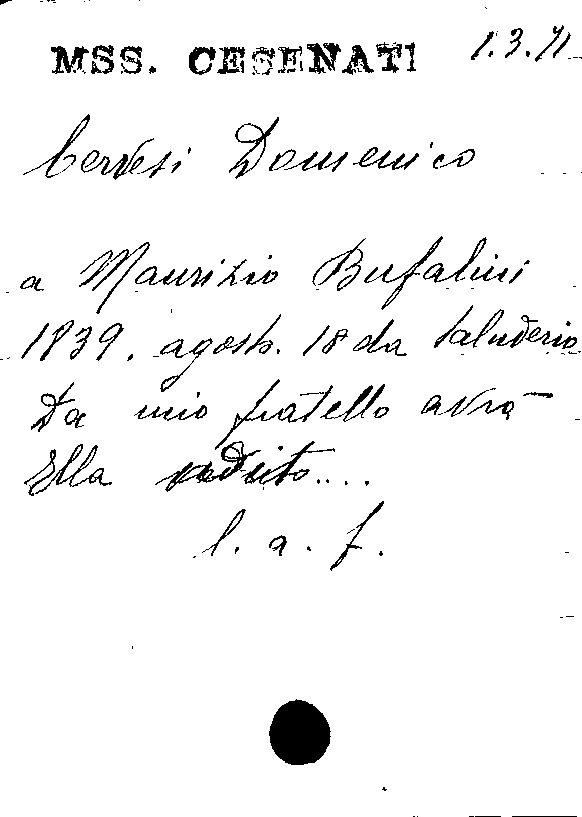 MSS. CESENATI 1.3.71
Cervesi Domenico
a Maurizio Bufalini
1839. agosto. 18 da Saluderio
Da mio fratello avrà
Ella udito....
l. a. f.